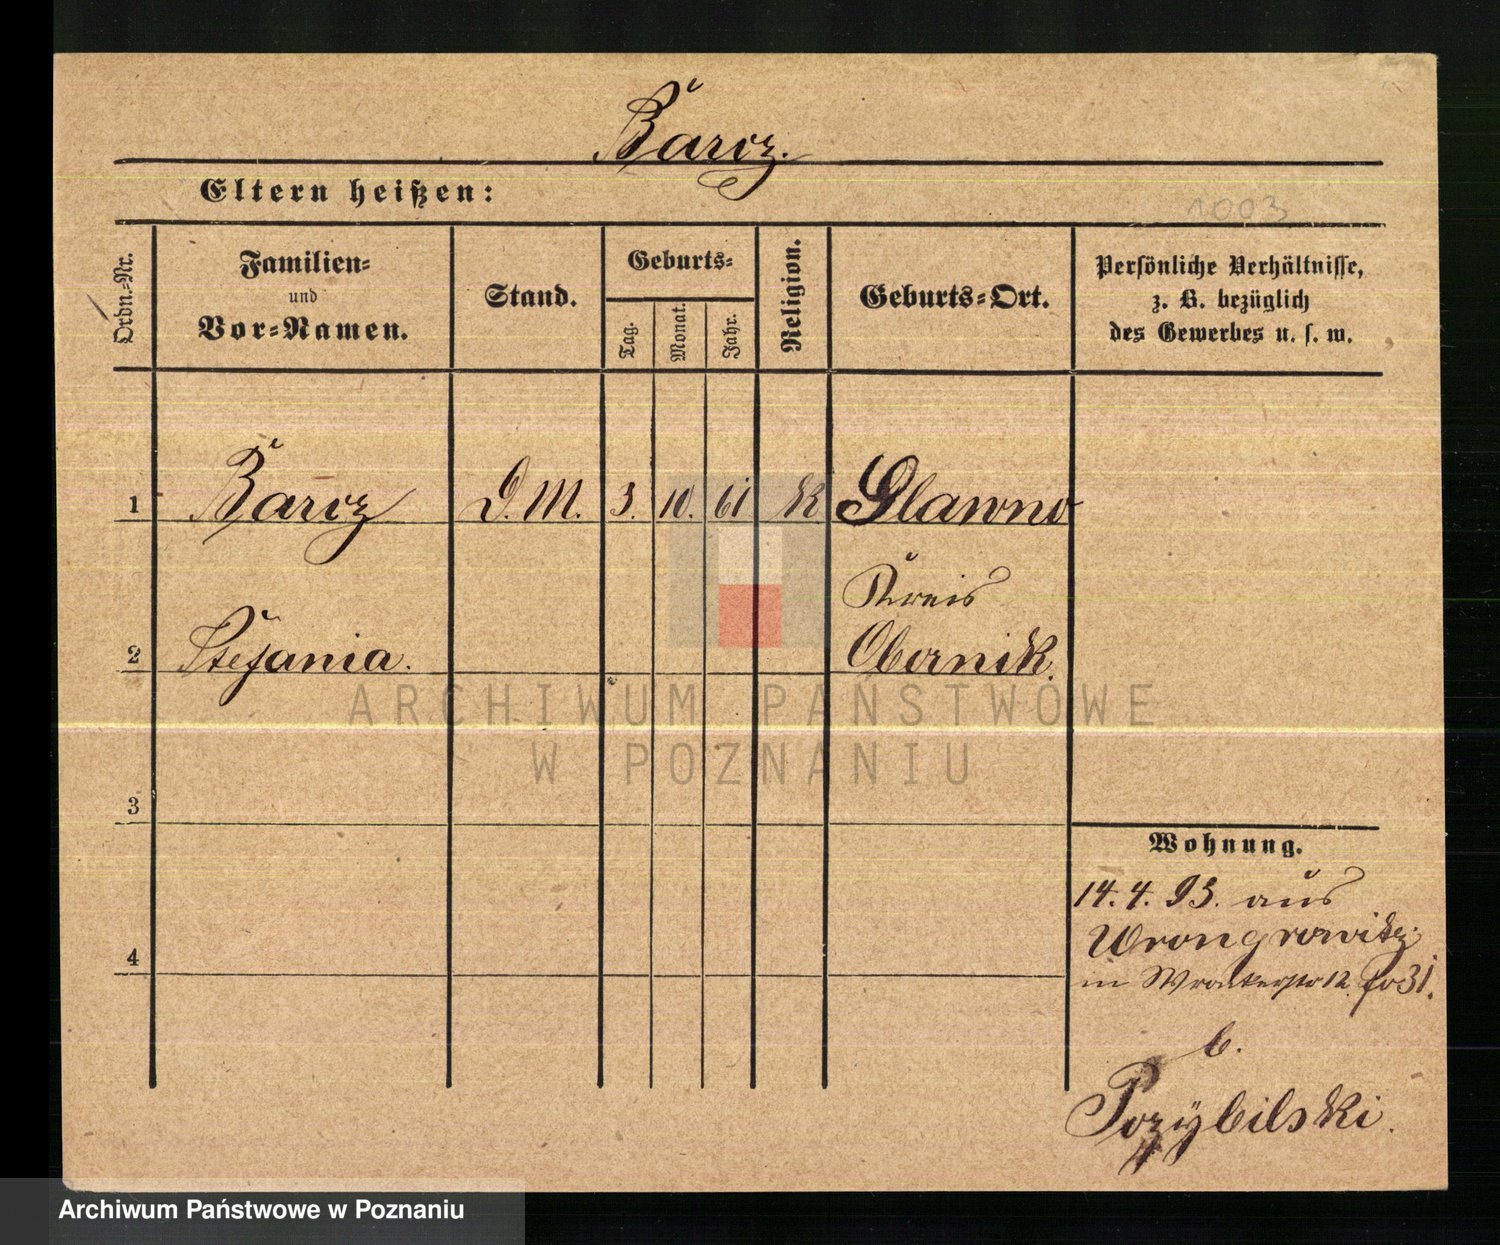 Barcz.
Eltern heißen:
1003
Ordn.-Nr.
Familien-
und
Vor-Namen.
Stand.
Geburts-
Tag.
Monat.
Jahr.
Religion.
Geburts-Ort.
Persönliche Verhältnisse,
z. B. bezüglich
des Gewerbes u. s. w.
1 Barcz D.M. 3. 10. 61 K Slawno
Kreis
2 Stefania. Obornik.
ARCHIWUM PAŃSTWOWE
W POZNANIU
3
Wohnung.
14. 4. 93. aus
Wrongrowitz
4
in 12. 31.
b.
Przybilski.
Archiwum Państwowe w Poznaniu